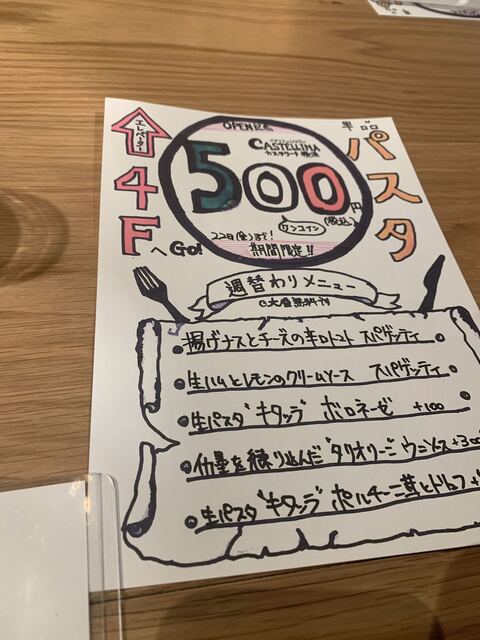 エレベーター
4Fへ GO!
OPEN記念
CASTELLIMA
500円
(税込)
ワンコイン
22日(金)まで!
期間限定!!
単品
パスタ
週替わりメニュー
揚げナスとチーズの辛口トマト スパゲッティ
生ハムとレモンのクリームソース スパゲッティ
生パスタ"キタッラ" ボロネーゼ +100
を練り込んだ"タリオリーニ"ウニソース +300
生パスタ"キタッラ" ポルチーニ茸とトリュフ +